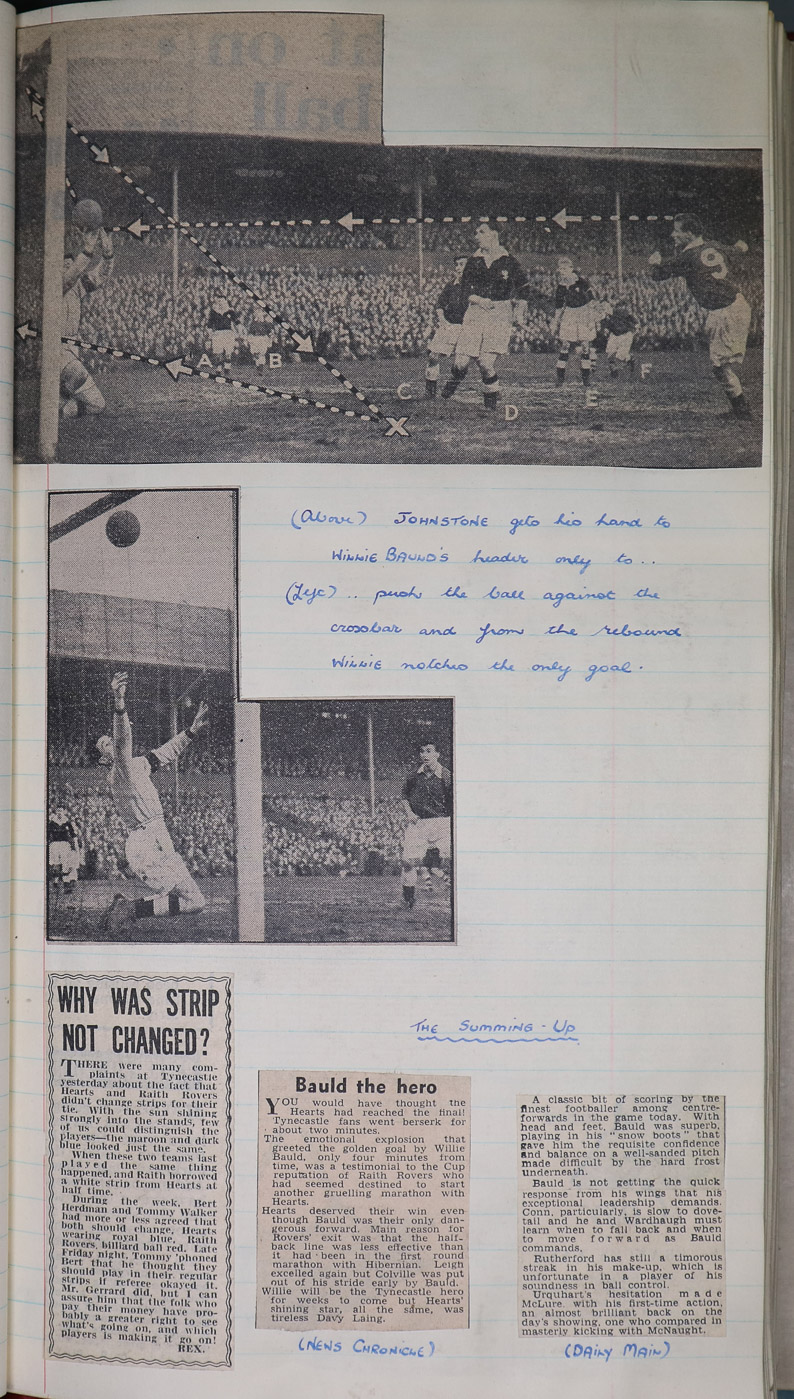 A
B
C
D
E
F
X
9
(Above) JOHNSTONE gets his hand to
WILLIE BAULD'S header only to ..
.. push the ball against the
crossbar and from the rebound
WILLIE notches the only goal.
WHY WAS STRIP
NOT CHANGED?
THERE were many com-
plaints at Tynecastle
yesterday about the fact that
Hearts and Raith Rovers
didn't change strips for their
tie. With the sun shining
strongly into the stands, few
of us could distinguish the
players—the maroon and dark
blue looked just the same.
When these two teams last
played the same thing
happened, and Raith borrowed
a white strip from Hearts at
half time.
During the week, Bert
Herdman and Tommy Walker
had more or less agreed that
both should change, Hearts
wearing royal blue, Raith
Rovers, billiard ball red. Late
Friday night, Tommy 'phoned
Bert that he thought they
should play in their regular
strips if referee okayed it.
Mr. Gerrard did, but I can
assure him that the folk who
pay their money have pro-
bably a greater right to see
what's going on, and which
players is making it go on!
REX.
THE SUMMING-UP
Bauld the hero
YOU would have thought the
Hearts had reached the final!
Tynecastle fans went berserk for
about two minutes.
The emotional explosion that
greeted the golden goal by Willie
Bauld, only four minutes from
time, was a testimonial to the Cup
reputation of Raith Rovers who
had seemed destined to start
another gruelling marathon with
Hearts.
Hearts deserved their win even
though Bauld was their only dan-
gerous forward. Main reason for
Rovers' exit was that the half-
back line was less effective than
it had been in the first round
marathon with Hibernian. Leigh
excelled again but Colville was put
out of his stride early by Bauld.
Willie will be the Tynecastle hero
for weeks to come but Hearts'
shining star, all the same, was
tireless Davy Laing.
(NEWS CHRONICLE)
A classic bit of scoring by the
finest footballer among centre-
forwards in the game today. With
head and feet, Bauld was superb,
playing in his "snow boots" that
gave him the requisite confidence
and balance on a well-sanded pitch
made difficult by the hard frost
underneath.
Bauld is not getting the quick
response from his wings that his
exceptional leadership demands.
Conn, particularly, is slow to dove-
tail and he and Wardhaugh must
learn when to fall back and when
to move forward as Bauld
commands.
Rutherford has still a timorous
streak in his make-up, which is
unfortunate in a player of his
soundness in ball control.
Urquhart's hesitation made
McLure, with his first-time action,
an almost brilliant back on the
day's showing, one who compared in
masterly kicking with McNaught.
(DAILY MAIL)